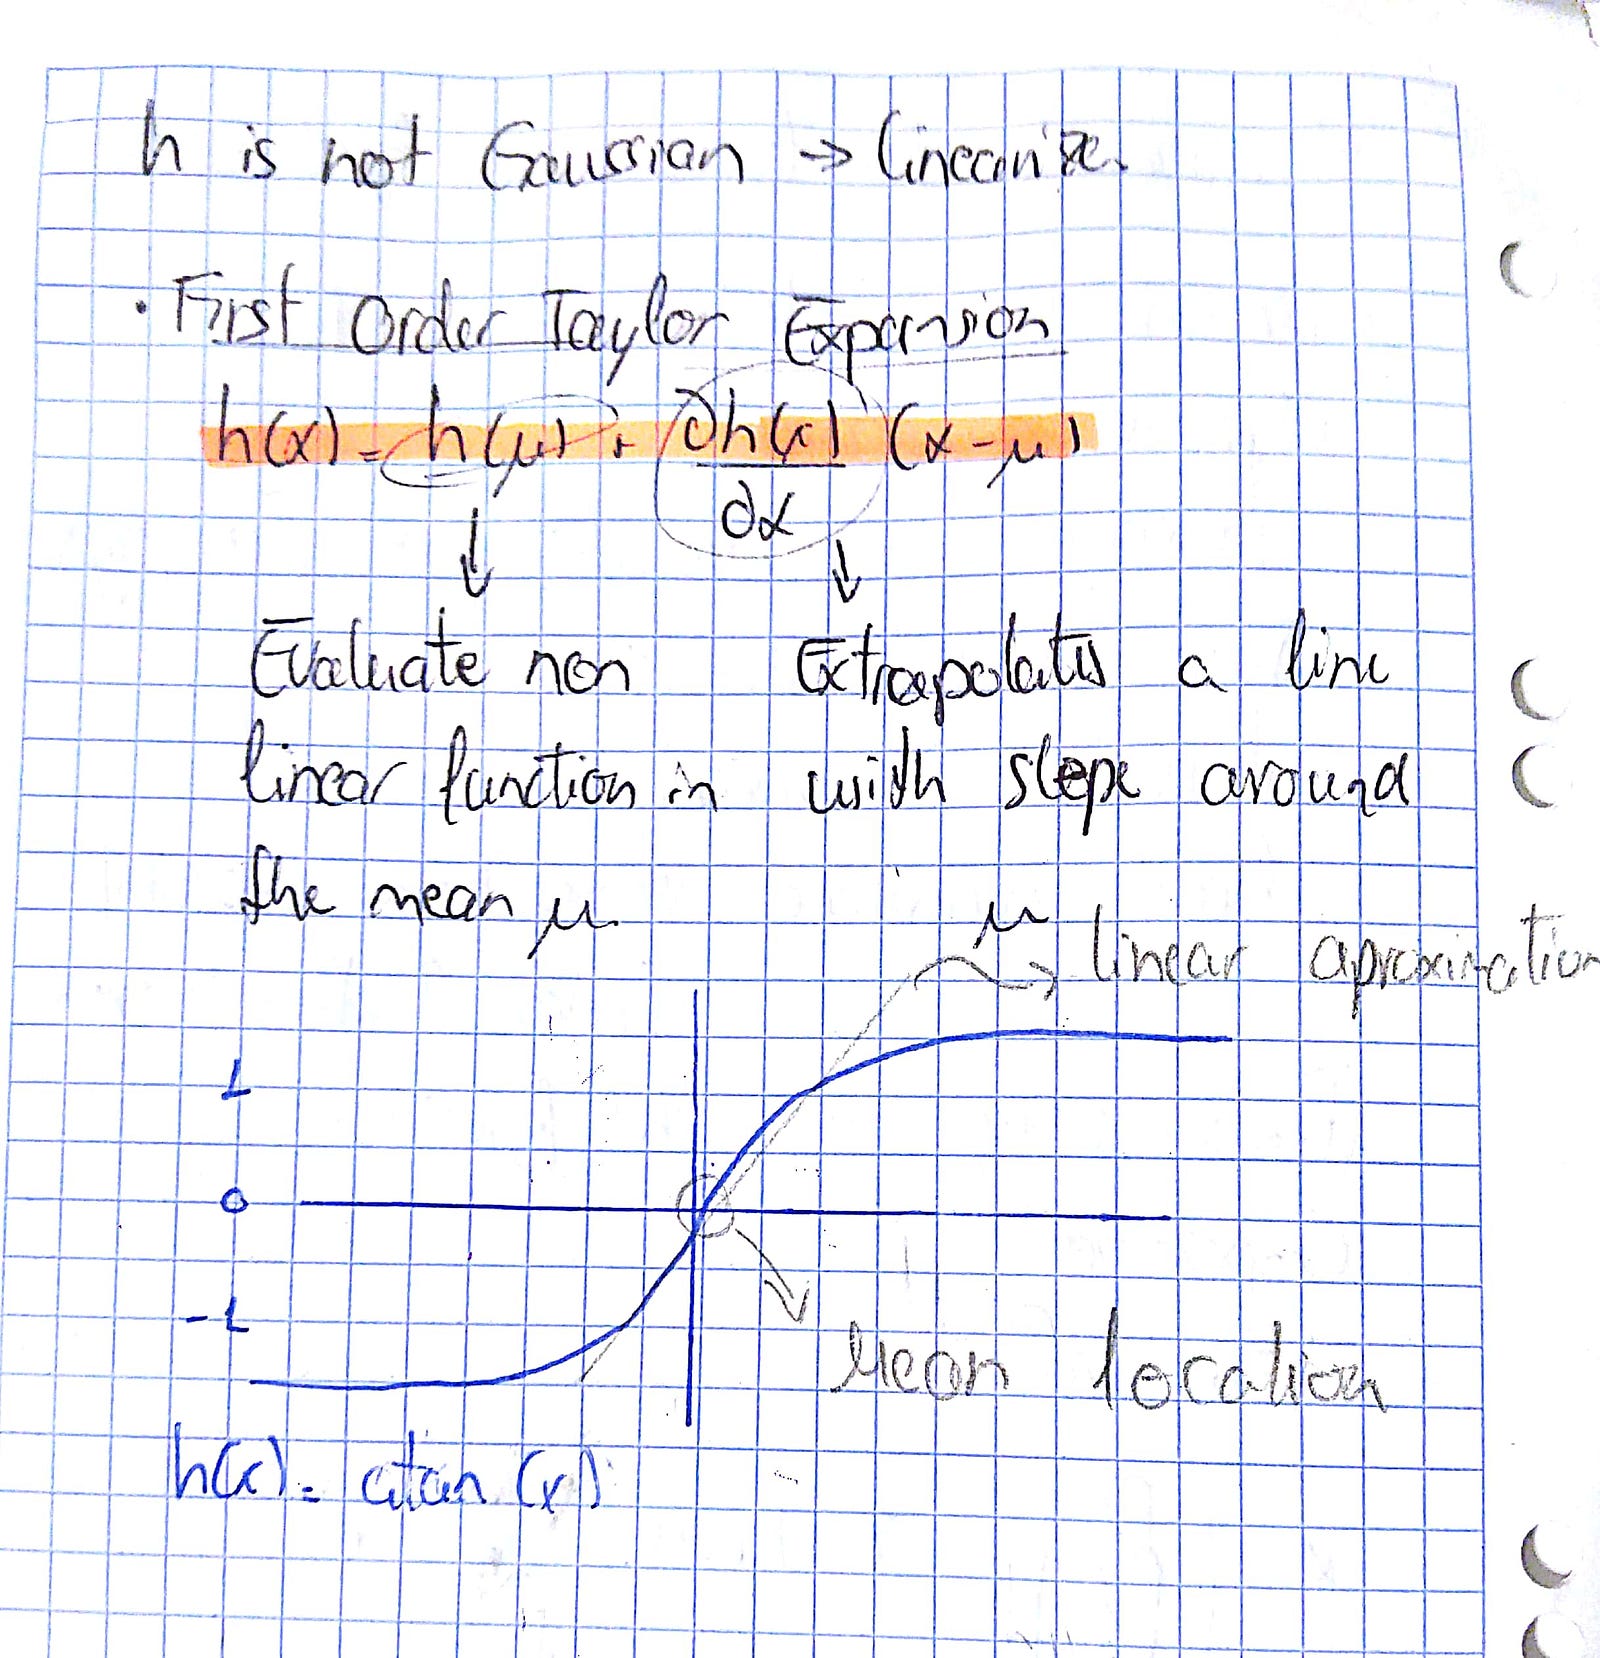 h is not Gaussian → linearize.
· First Order Taylor Expansion
h(x) = h(μ) + ∂h(x)/∂x (x-μ)
↓ ↓
Evaluate non
linear function in
the mean μ.
Extrapolates a line
with slope around
μ
linear aproximation
1
0
-1
Mean location
h(x) = atan(x)